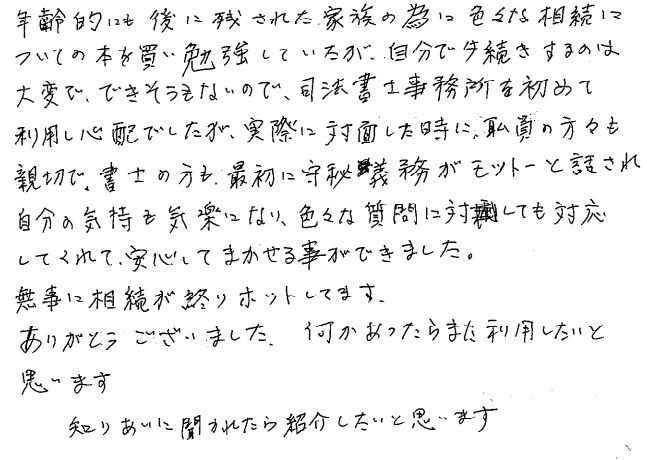 年齢的にも後に残された家族の為に色々な相続に
ついての本を買い勉強していたが、自分で手続きするのは
大変で、できそうもないので、司法書士事務所を初めて
利用し心配でしたが、実際に対面した時に、職員の方々も
親切で、書士の方も、最初に守秘義務がモットーと話され
自分の気持も気楽になり、色々な質問に対しても対応
してくれて、安心してまかせる事ができました。
無事に相続が終りホットしてます.
ありがとうございました. 何かあったらまた利用したいと
思います
知りあいに聞かれたら紹介したいと思います